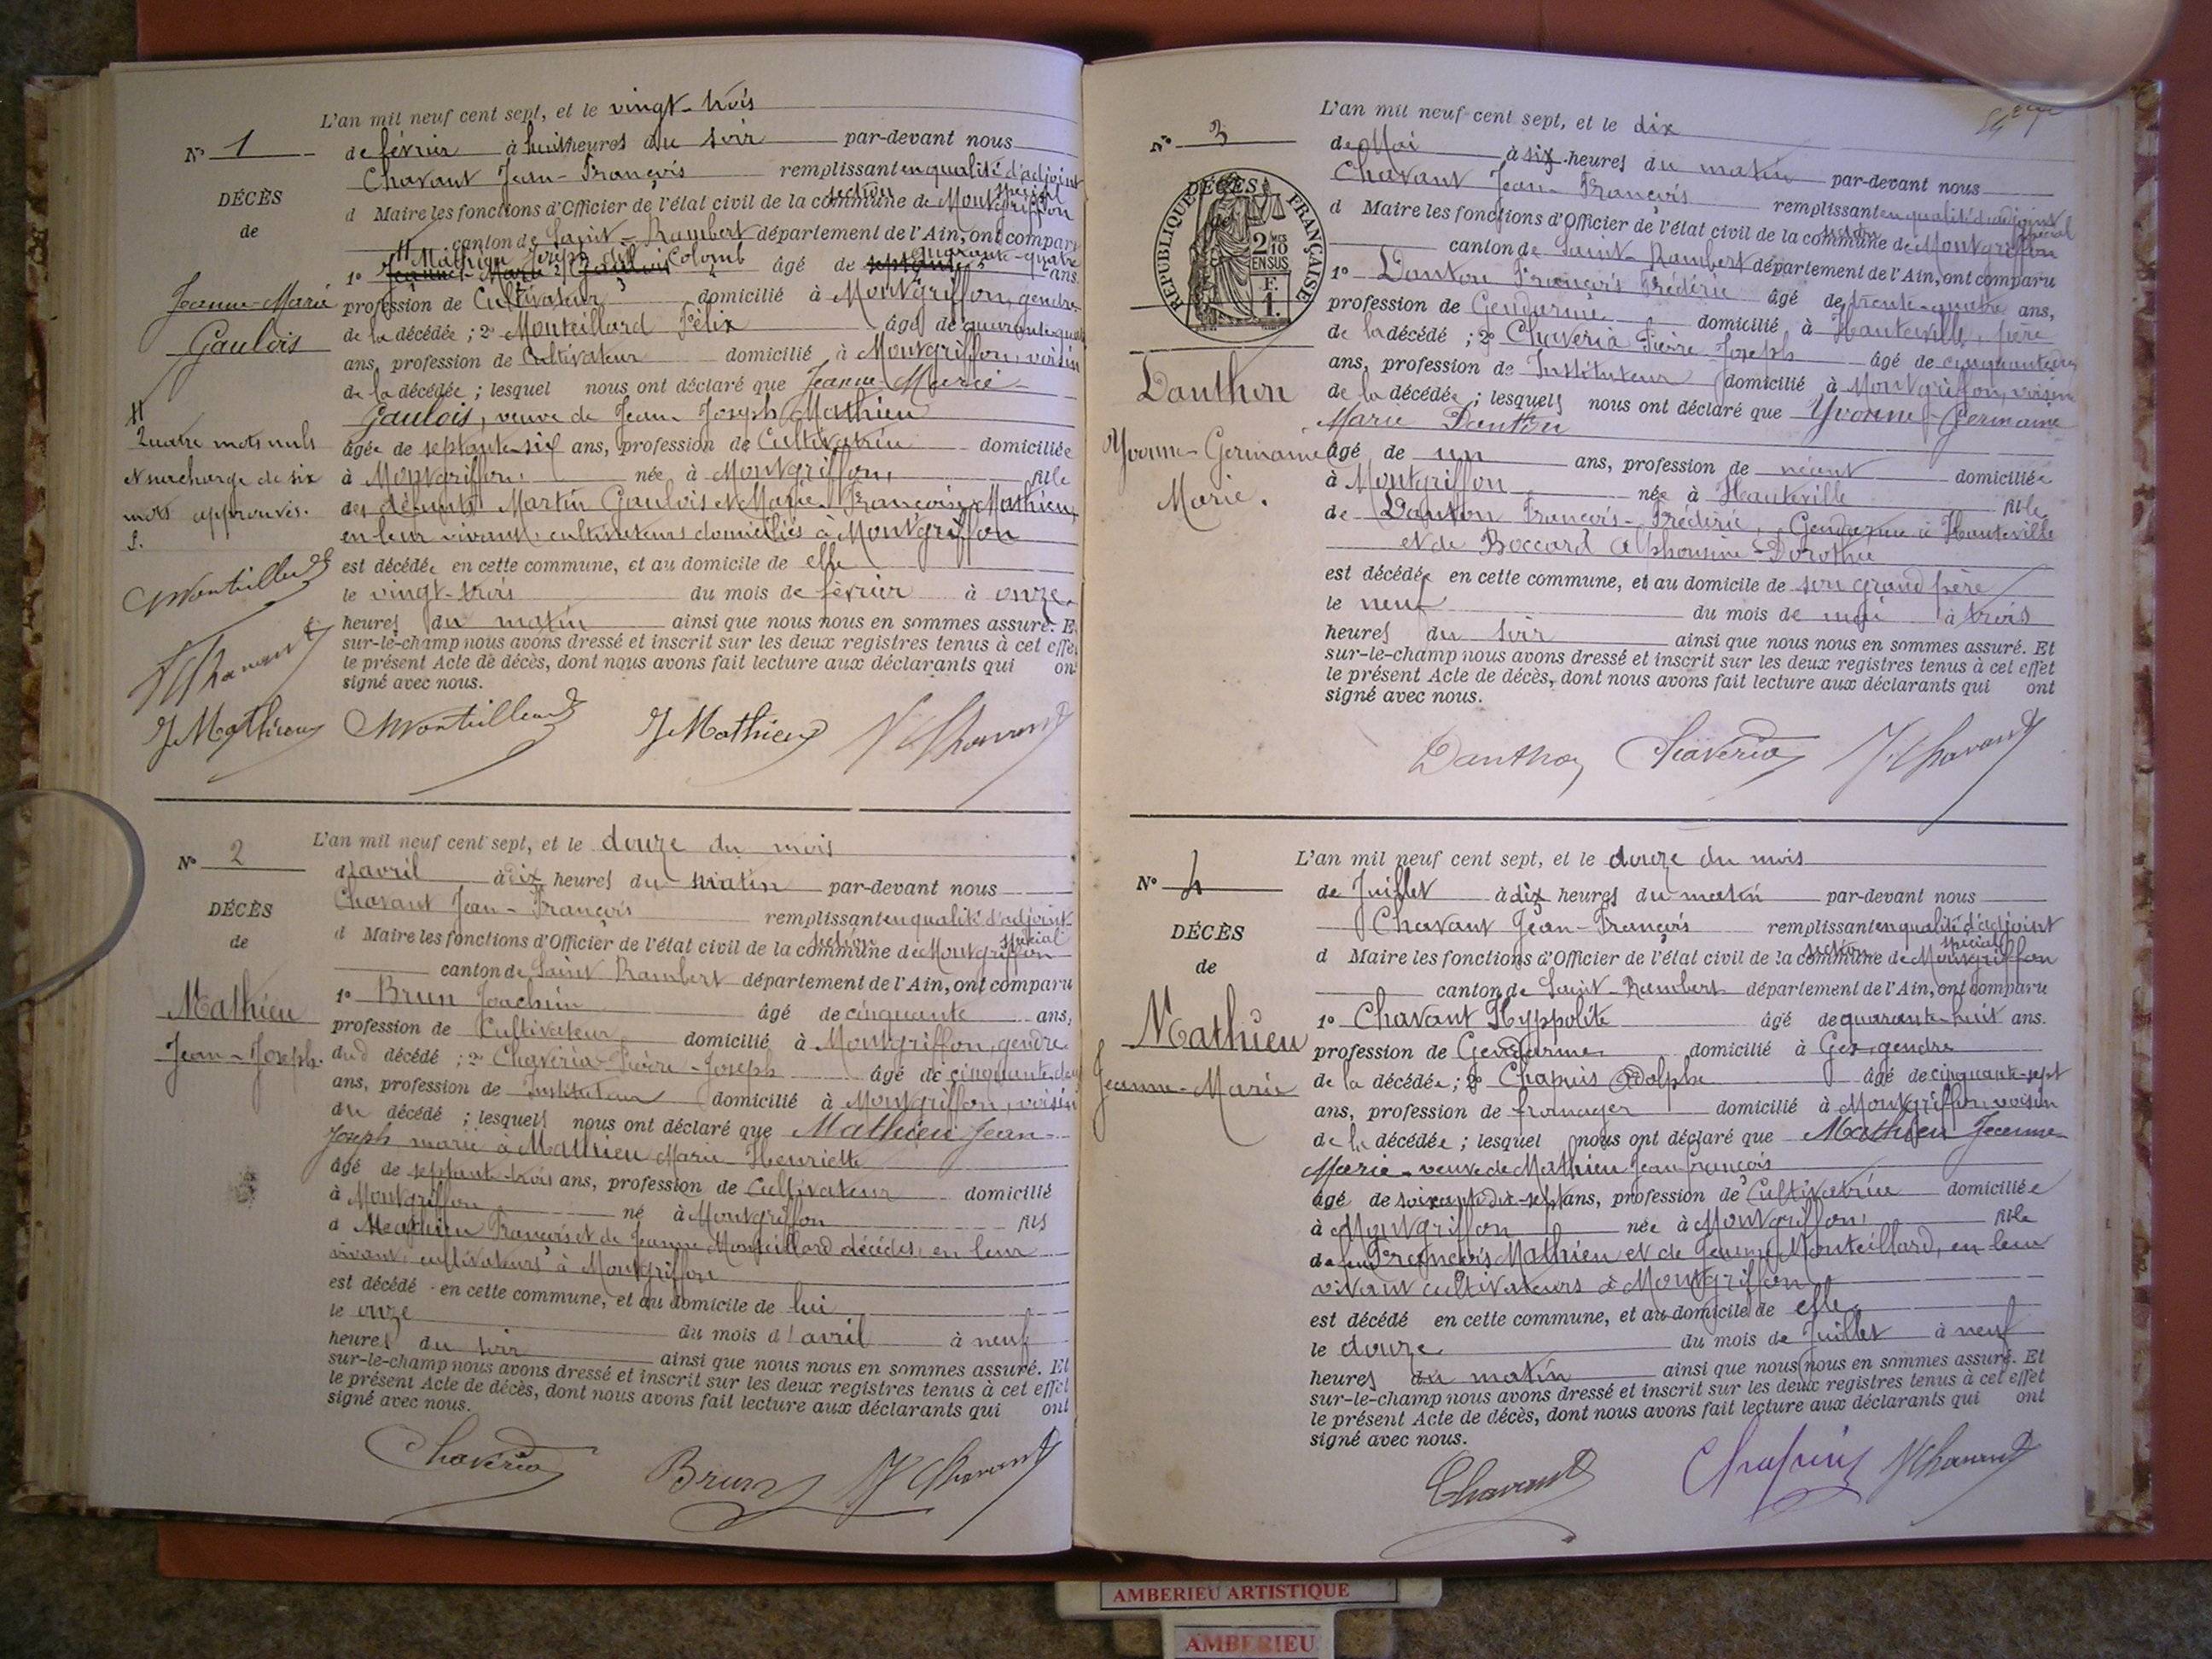 L'an mil neuf cent sept, et le vingt-trois
N° 1
de février à huit heures du soir par-devant nous
Chavant Jean-François remplissant en qualité d'adjoint
spécial
section
DÉCÈS
d Maire les fonctions d'Officier de l'état civil de la commune de Montgriffon
de
canton de Saint-Rambert département de l'Ain, ont comparu
Mathieu Joseph Colomb quarante-quatre
1° âgé de ans
Jeanne-Marie
Gaulois
profession de Cultivateur domicilié à Montgriffon, gendre
de la décédée ; 2° Monteillard Félix âgé de quarante quatre
ans, profession de Cultivateur domicilié à Montgriffon, voisin
de la décédée ; lesquel nous ont déclaré que Jeanne Marie
Gaulois, veuve de Jean-Joseph Mathieu
Quatre mots nuls
et surcharge de six
mots approuvés.
âgée de septante-six ans, profession de Cultivatrice domiciliée
à Montgriffon, née à Montgriffon, fille
des défunts Martin Gaulois et Marie-Françoise Mathieu
en leur vivant cultivateurs domiciliés à Montgriffon
est décédée en cette commune, et au domicile de elle
le vingt-trois du mois de février à onze
heures du matin ainsi que nous nous en sommes assuré. Et
sur-le-champ nous avons dressé et inscrit sur les deux registres tenus à cet effet
le présent Acte de décès, dont nous avons fait lecture aux déclarants qui ont
signé avec nous.
Monteillard
JF Chavant
J Mathieu Monteillard J Mathieu JF Chavant
L'an mil neuf cent sept, et le douze du mois
N° 2
d'avril à dix heures du matin par-devant nous
Chavant Jean-François remplissant en qualité d'adjoint
spécial
section
DÉCÈS
d Maire les fonctions d'Officier de l'état civil de la commune de Montgriffon
de
canton de Saint Rambert département de l'Ain, ont comparu
Mathieu
Jean-Joseph.
1° Brun Joachim âgé de cinquante ans,
profession de Cultivateur domicilié à Montgriffon, gendre
dud décédé ; 2° Chaveria Pierre-Joseph âgé de cinquante deux
ans, profession de Instituteur domicilié à Montgriffon, voisin
du décédé ; lesquels nous ont déclaré que Mathieu Jean-
Joseph marié à Mathieu Marie Henriette
âgé de septante-trois ans, profession de Cultivateur domicilié
à Montgriffon né à Montgriffon fils
d Mathieu François et de Jeanne Monteillard décédés, en leur
vivant, cultivateurs à Montgriffon
est décédé en cette commune, et au domicile de lui
le onze du mois d'avril à neuf
heures du soir ainsi que nous nous en sommes assuré. Et
sur-le-champ nous avons dressé et inscrit sur les deux registres tenus à cet effet
le présent Acte de décès, dont nous avons fait lecture aux déclarants qui ont
signé avec nous.
Chaveria Brun JF Chavant
L'an mil neuf cent sept, et le dix
N° 3
de Mai à six heures du matin par-devant nous
Chavant Jean-François remplissant en qualité d'adjoint
spécial
section
d Maire les fonctions d'Officier de l'état civil de la commune de Montgriffon
canton de Saint-Rambert département de l'Ain, ont comparu
DÉCÈS
de
RÉPUBLIQUE FRANÇAISE
2/10 EN SUS
F. 1.
1° Danton François Frédéric âgé de trente-quatre ans,
profession de Gendarme domicilié à Hauteville, père
de la décédé ; 2° Chaveria Pierre Joseph âgé de cinquante deux
ans, profession de Instituteur domicilié à Montgriffon, voisin
Danthon
Yvonne-Germaine
Marie.
de la décédée ; lesquels nous ont déclaré que Yvonne-Germaine
Marie Danton
âgé de un ans, profession de néant domiciliée
à Montgriffon née à Hauteville fille
de Danton François-Frédéric, Gendarme à Hauteville
et de Boccard Alphonsine-Dorothée
est décédée en cette commune, et au domicile de son grand père
le neuf du mois de mai à trois
heures du soir ainsi que nous nous en sommes assuré. Et
sur-le-champ nous avons dressé et inscrit sur les deux registres tenus à cet effet
le présent Acte de décès, dont nous avons fait lecture aux déclarants qui ont
signé avec nous.
Danthon Chaveria JF Chavant
L'an mil neuf cent sept, et le douze du mois
N° 4
de Juillet à dix heures du matin par-devant nous
Chavant Jean-François remplissant en qualité d'adjoint
spécial
section
DÉCÈS
d Maire les fonctions d'Officier de l'état civil de la commune de Montgriffon
de
canton de Saint-Rambert département de l'Ain, ont comparu
Mathieu
Jeanne-Marie
1° Chavant Hyppolite âgé de quarante-huit ans.
profession de Gendarme domicilié à Gex, gendre
de la décédée ; 2° Chapuis Adolphe âgé de cinquante-sept
ans, profession de fromager domicilié à Montgriffon, voisin
de la décédée ; lesquel nous ont déclaré que Mathieu Jeanne-
Marie-veuve de Mathieu Jean François
âgé de soixante dix-sept ans, profession de Cultivatrice domiciliée
à Montgriffon née à Montgriffon, fille
de feu François Mathieu et de Jeanne Monteillard, en leur
vivant cultivateurs à Montgriffon
est décédé en cette commune, et au domicile de elle
le douze du mois de Juillet à neuf
heures du matin ainsi que nous nous en sommes assuré. Et
sur-le-champ nous avons dressé et inscrit sur les deux registres tenus à cet effet
le présent Acte de décès, dont nous avons fait lecture aux déclarants qui ont
signé avec nous.
Chavant Chapuis JF Chavant
AMBERIEU ARTISTIQUE
AMBERIEU